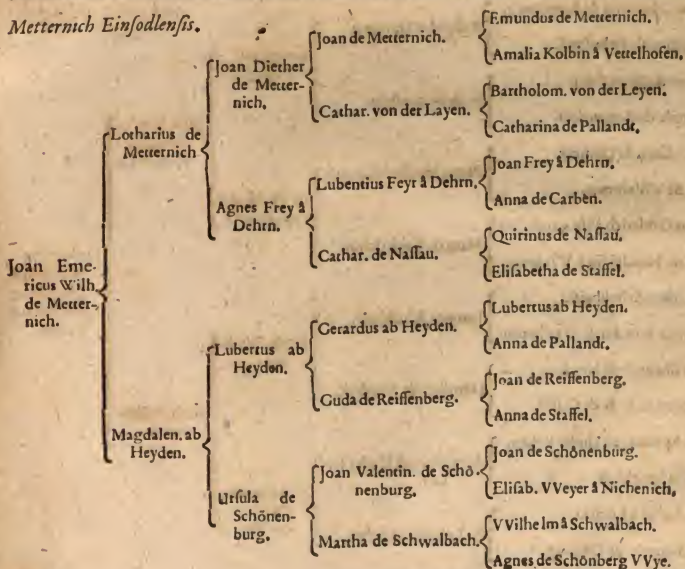 Metternich Einſodlenſis.
Joan Emericus Wilh. de Metternich.
Lotharius de Metternich
Magdalen. ab Heyden.
Joan Diether de Metternich.
Agnes Frey â Dehrn.
Lubertus ab Heyden.
Urſula de Schönenburg.
Joan de Metternich.
Cathar. von der Layen.
Lubentius Feyr â Dehrn.
Cathar. de Naſſau.
Gerardus ab Heyden.
Guda de Reiffenberg.
Joan Valentin. de Schönenburg.
Martha de Schwalbach.
Emundus de Metternich.
Amalia Kolbin â Vettelhofen.
Bartholom. von der Leyen.
Catharina de Pallandt.
Joan Frey â Dehrn.
Anna de Carben.
Quirinus de Naſſau.
Eliſabetha de Staffel.
Lubertus ab Heyden.
Anna de Pallandt.
Joan de Reiffenberg.
Anna de Staffel.
Joan de Schönenburg.
Eliſab. VVeyer â Nichenich.
VVilhelm â Schwalbach.
Agnes de Schönberg VVye.